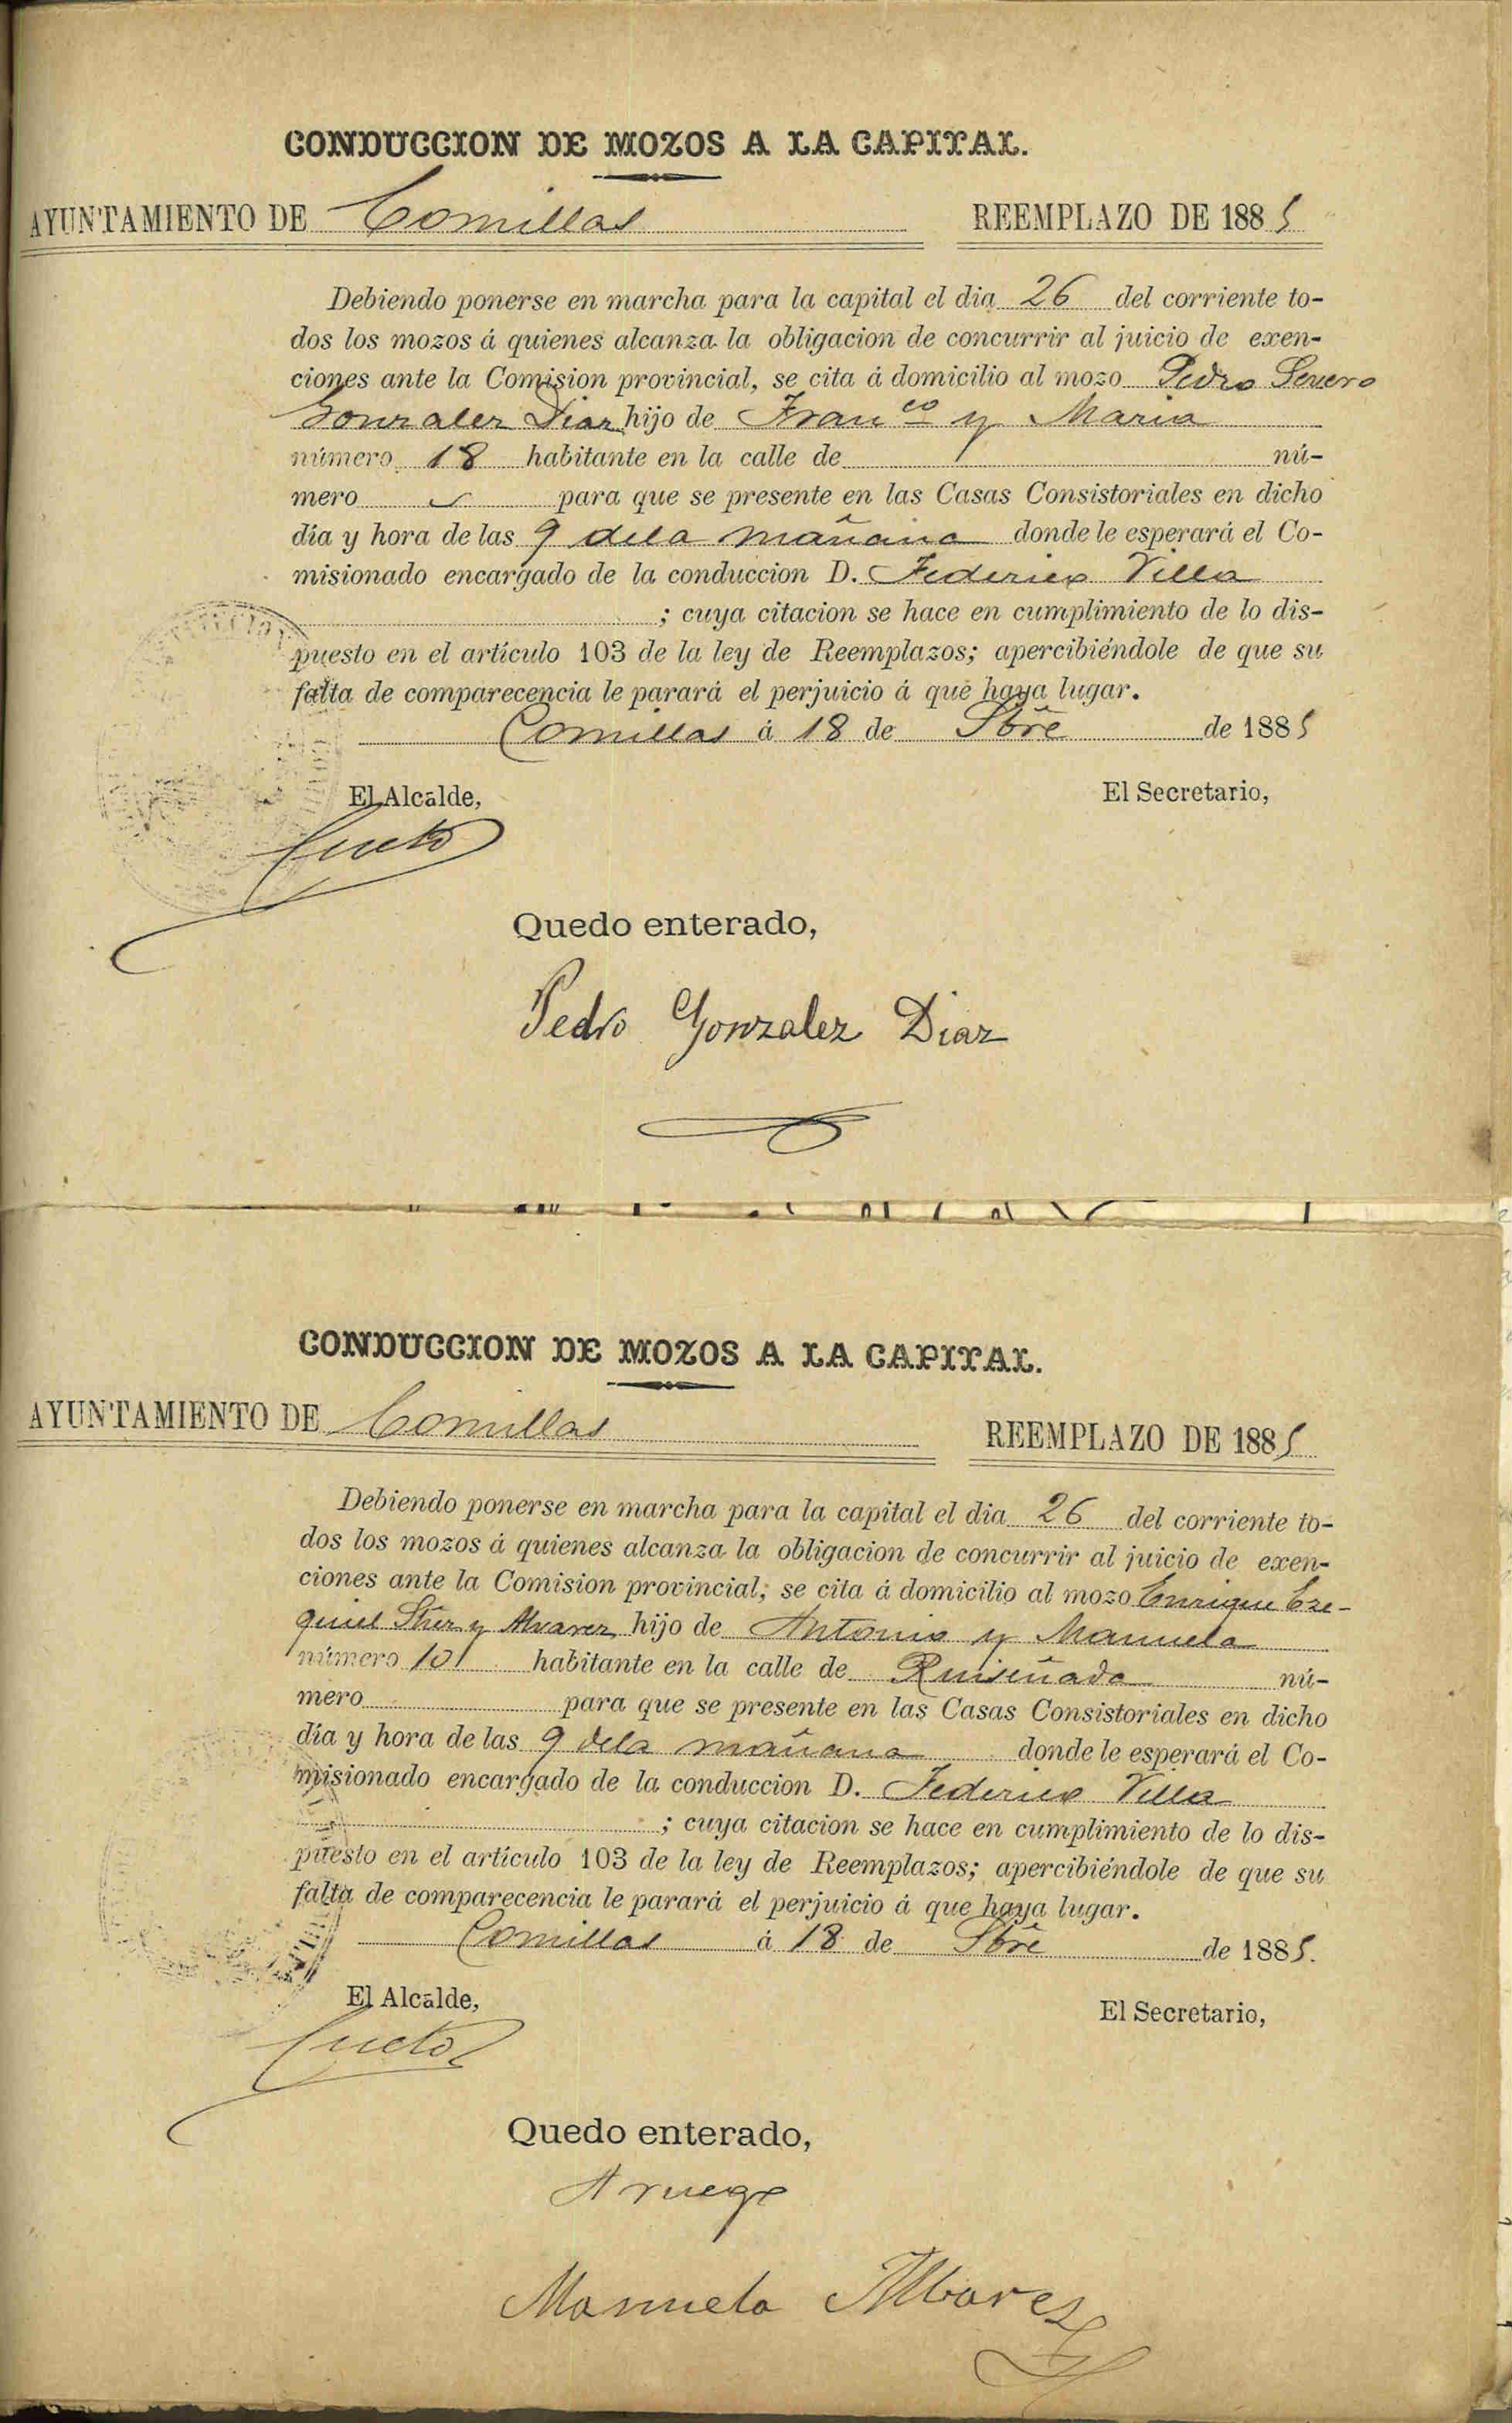 CONDUCCION DE MOZOS A LA CAPITAL.
AYUNTAMIENTO DE Comillas REEMPLAZO DE 1885
Debiendo ponerse en marcha para la capital el dia 26 del corriente to-
dos los mozos á quienes alcanza la obligacion de concurrir al juicio de exen-
ciones ante la Comision provincial, se cita á domicilio al mozo Pedro Severo
Gonzalez Diaz hijo de Franco y Maria
número 18 habitante en la calle de nú-
mero para que se presente en las Casas Consistoriales en dicho
día y hora de las 9 dela mañana donde le esperará el Co-
misionado encargado de la conduccion D. Federico Villa
; cuya citacion se hace en cumplimiento de lo dis-
puesto en el artículo 103 de la ley de Reemplazos; apercibiéndole de que su
falta de comparecencia le parará el perjuicio á que haya lugar.
Comillas á 18 de Sbre de 1885
El Alcalde, El Secretario,
Cueto
Quedo enterado,
Pedro Gonzalez Diaz
CONDUCCION DE MOZOS A LA CAPITAL.
AYUNTAMIENTO DE Comillas REEMPLAZO DE 1885
Debiendo ponerse en marcha para la capital el dia 26 del corriente to-
dos los mozos á quienes alcanza la obligacion de concurrir al juicio de exen-
ciones ante la Comision provincial, se cita á domicilio al mozo Enrique Eze-
quiel y Alvarez hijo de Antonio y Manuela
número 10 habitante en la calle de Ruiseñada nú-
mero para que se presente en las Casas Consistoriales en dicho
día y hora de las 9 dela mañana donde le esperará el Co-
misionado encargado de la conduccion D. Federico Villa
; cuya citacion se hace en cumplimiento de lo dis-
puesto en el artículo 103 de la ley de Reemplazos; apercibiéndole de que su
falta de comparecencia le parará el perjuicio á que haya lugar.
Comillas á 18 de Sbre de 1885.
El Alcalde, El Secretario,
Cueto
Quedo enterado,
A ruego
Manuela Albarez